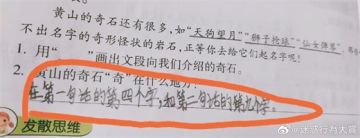 黄山的奇石还有很多,如“天狗望月”“狮子抢球”“仙女弹琴”
不出名字的奇形怪状的岩石,正等你去给它们起名字呢!
1. 用“ ”画出文段向我们介绍的奇石。
2. 黄山的奇石“奇”在什么地方?
在第一句话的第四个字,和第二句话的第九个字。
发散思维
@迷惑行为大赏